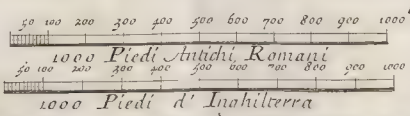 50 100 200 300 400 500 600 700 800 900 1000
1000 Piedi Antichi Romani
50 100 200 300 400 500 600 700 800 900 1000
1000 Piedi d' Inghilterra